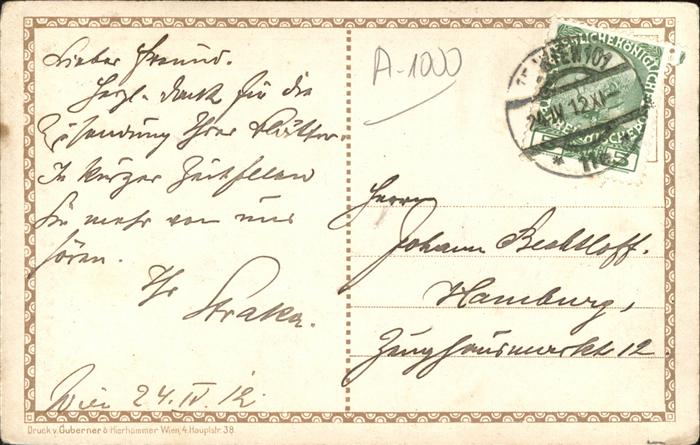 Lieber Freund.
Herzl. Dank für die
Zusendung Ihrer Blätter.
In kurzer Zeit sollen
Sie mehr von uns
hören.
Ihr
Straka.
Wien 24.IV.12.
A-1000
Herrn
Johann Bechtloff.
Hamburg,
Zeughausmarkt 12.
WIEN 101
24.IV.12.XI
5
Druck v. Guberner & Hierhammer Wien, 4. Hauptstr. 38.